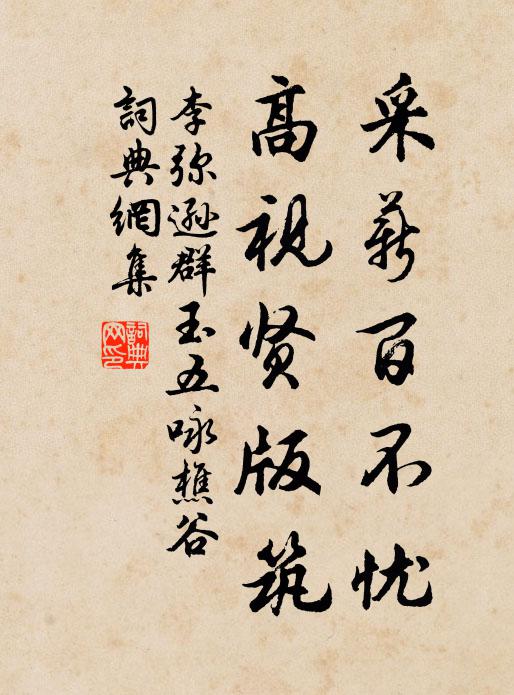 采薪百不忧
高视贤版筑
李弥逊群玉五咏樵谷
詞典網集
詞典網印